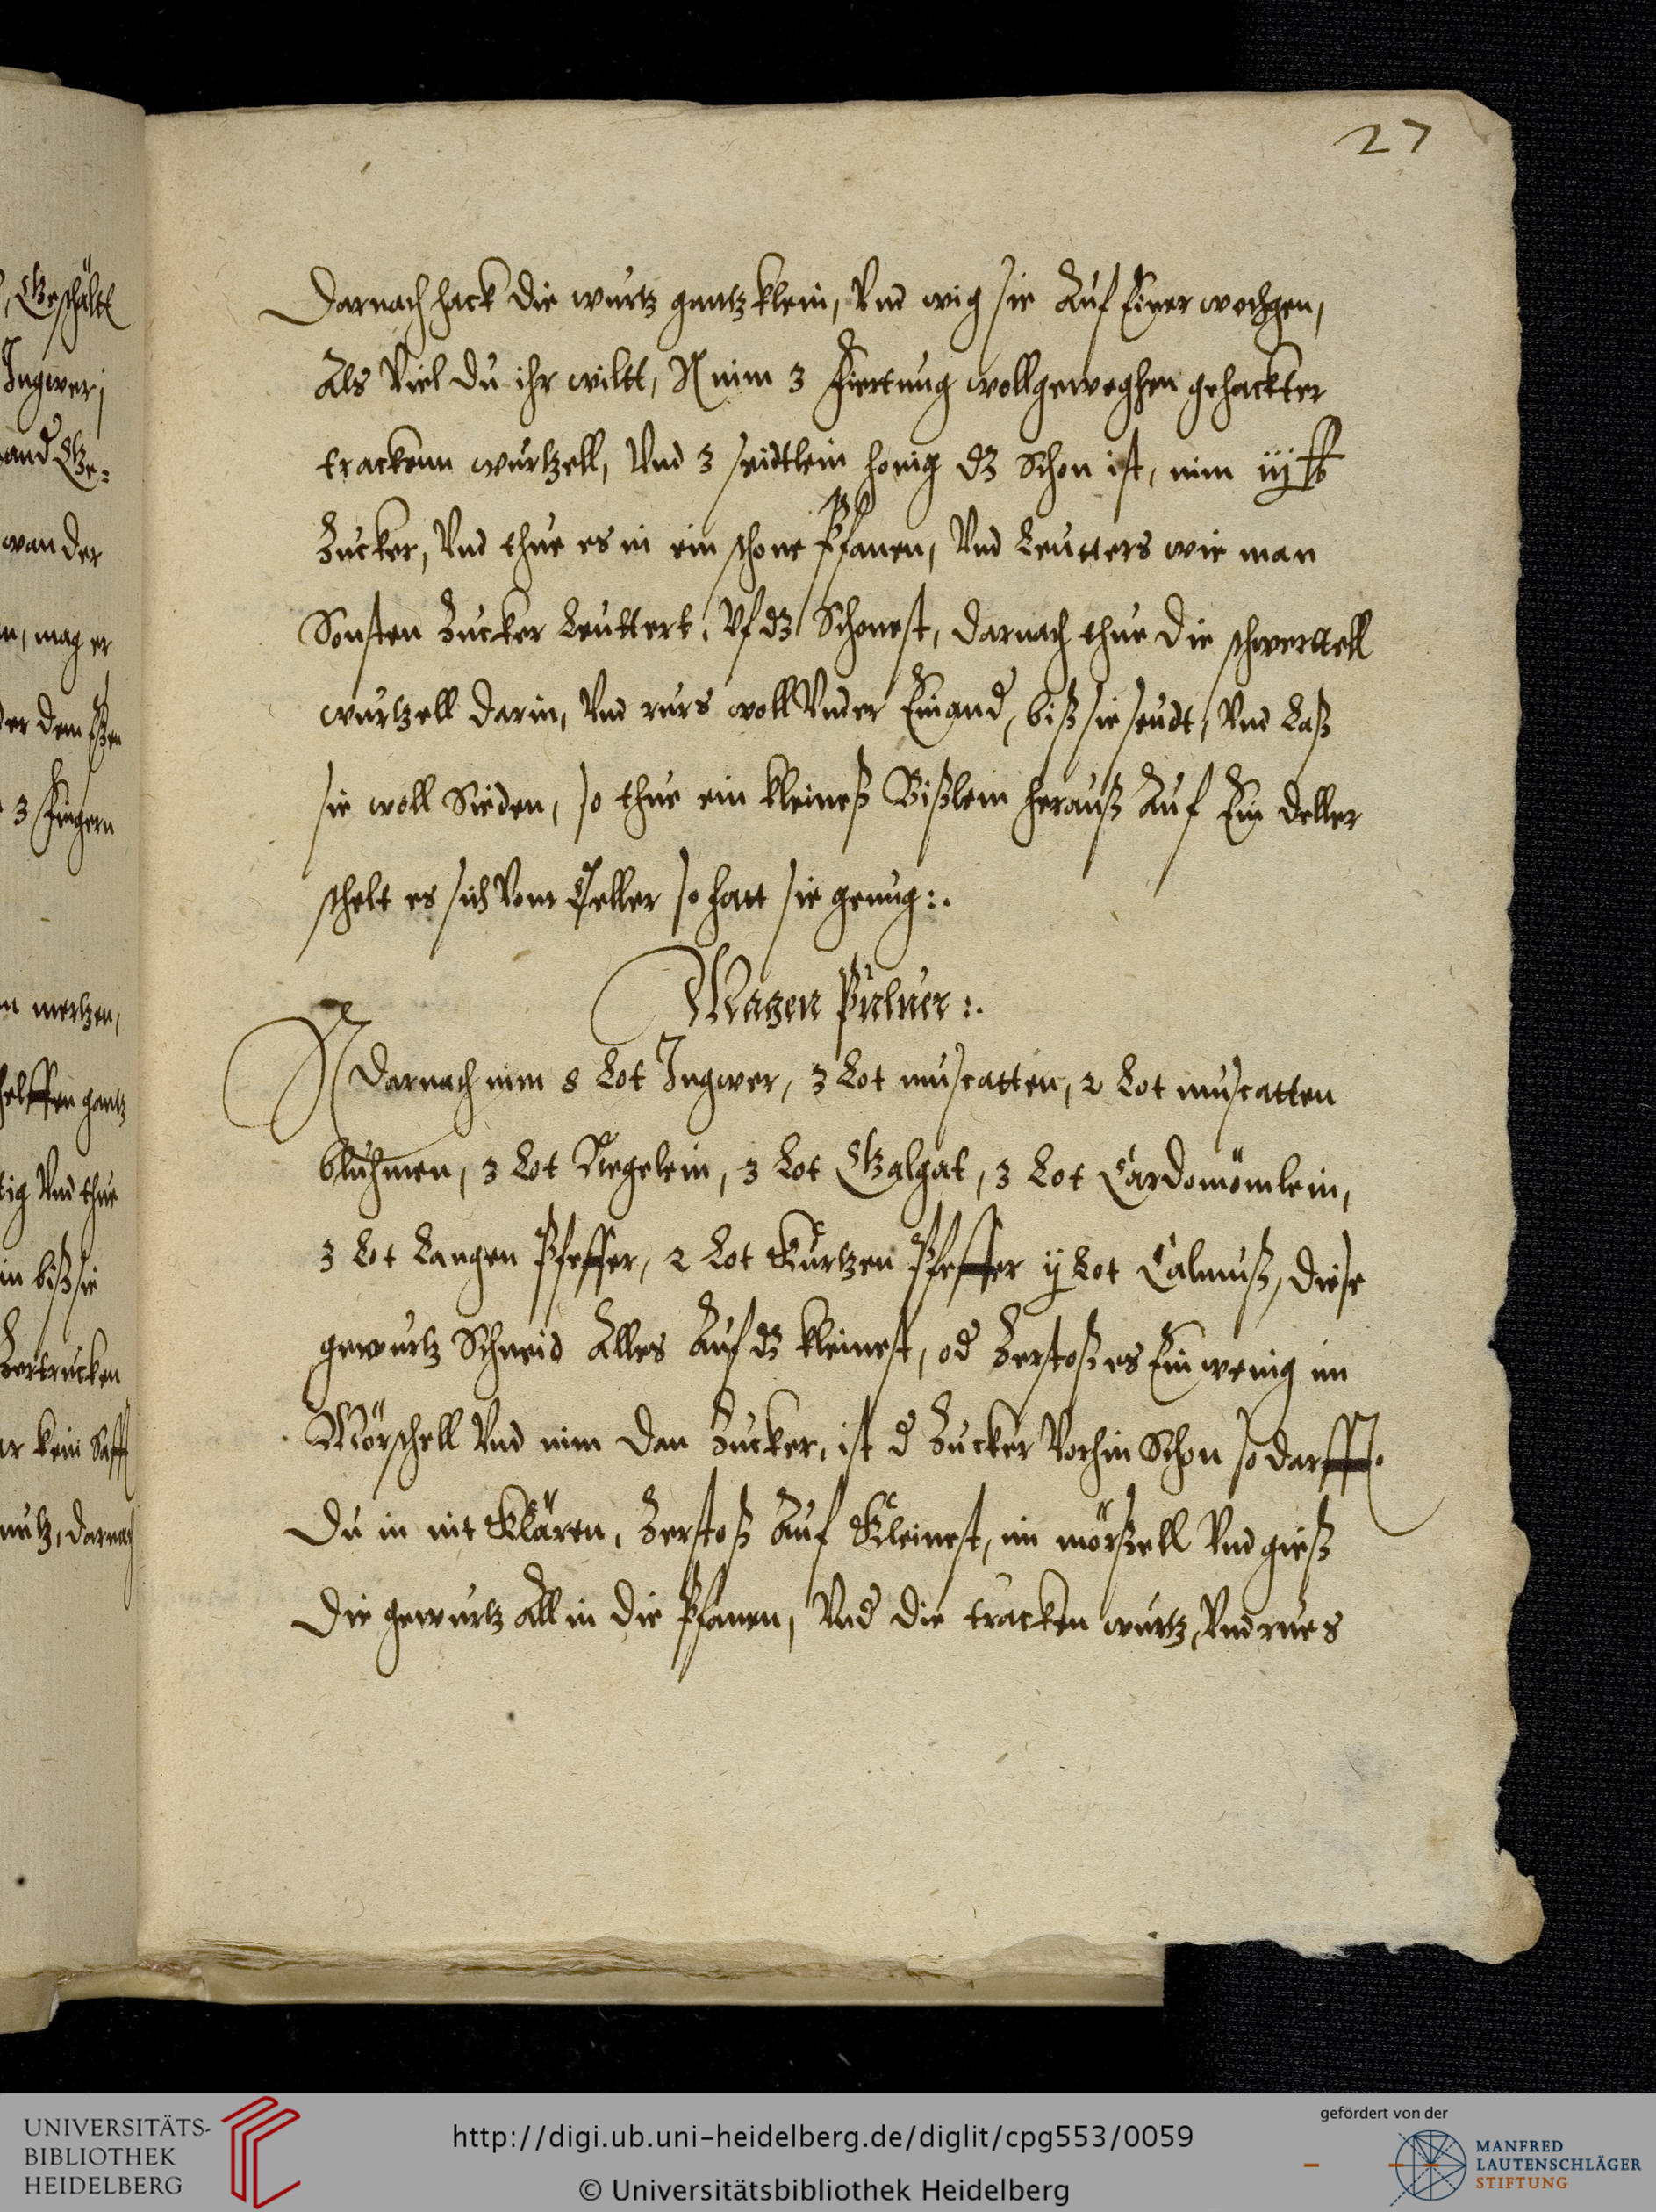 27
Darnach hack die wurtz gantz klein, Vnd wig sie Auf Einer wochgen,
Als Viel du ihr wiltt, N nim 3 Fiertung wollgeweghen gehackter
trackenn wurtzell, Vnd 3 seidtlein honig dz Schon ist, nim iij ℔
Zucker, Vnd thue es in ein schone Pfanen, Vnd Leutters wie man
Sonsten Zucker Leuttert, Vf dz Schonest, darnach thue die schwerttell
wurtzell darin, Vnd rurs woll Vnder Einand, biß sie seudt, Vnd Laß
sie woll Sieden, so thue ein kleineß Bißlein herauß Auf Ein deller
schelt es sich Vom Teller so hatt sie genug:.
Magen Puluer:.
N darnach nim 8 Lot Ingwer, 3 Lot muscatten, 2 Lot muscatten
bluhmen, 3 Lot Negelein, 3 Lot Galgat, 3 Lot Cardomömlein,
3 Lot Langen Pfeffer, 2 Lot Kurtzen Pfeffer ij Lot Calmuß, diese
gewurtz Schneid Alles Auf dz kleinest, od Zerstoß es Ein wenig im
Mörschell Vnd nim dan Zucker, ist d Zucker Vorhin Schon so darfft
du in nit Klären, Zerstoß Auf Kleinest, im mörßell Vnd gieß
die gewurtz All in die Pfanen, Vnd die tracken wurtz, Vnd rues
Geschältt
Ingwer
wan der
mag er
der dem Eßen
3 fingern
mertzen,
helffen gantz
tig Vnd thue
in biß sie
Zertrucken
kein Safft
nutz, darnach
UNIVERSITÄTS-
BIBLIOTHEK
HEIDELBERG
http://digi.ub.uni-heidelberg.de/diglit/cpg553/0059
© Universitätsbibliothek Heidelberg
gefördert von der
MANFRED
LAUTENSCHLÄGER
STIFTUNG